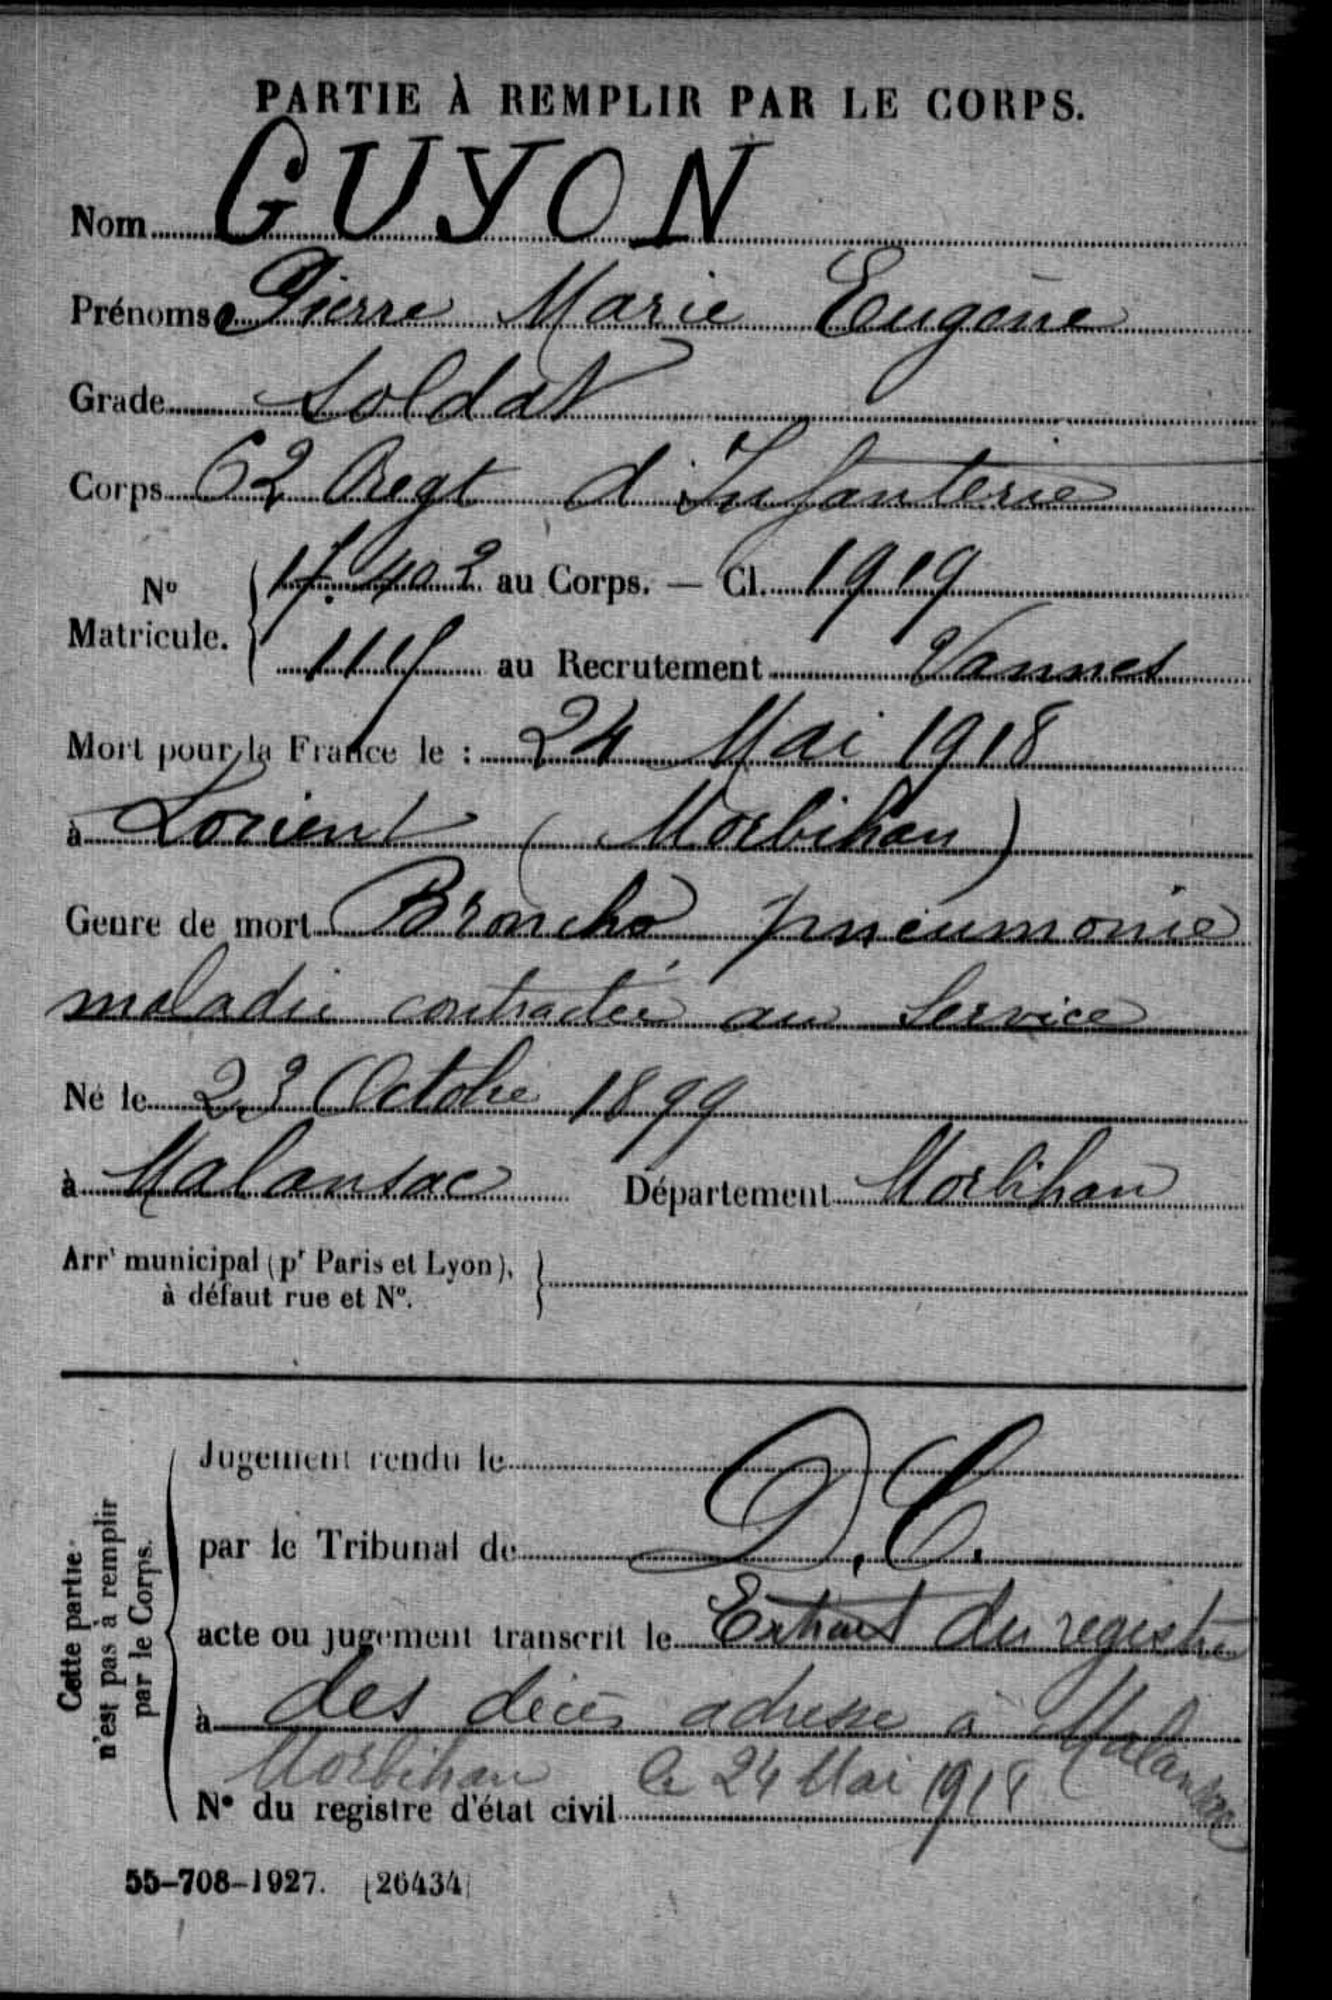 PARTIE À REMPLIR PAR LE CORPS.
Nom GUYON
Prénoms Pierre Marie Eugène
Grade Soldat
Corps 62 Regt d'Infanterie
No Matricule. 17.402 au Corps. — Cl. 1919
au Recrutement Vannes
Mort pour la France le : 24 Mai 1918
à Lorient (Morbihan)
Genre de mort Broncho pneumonie
maladie contractée au Service
Né le 23 Octobre 1899
à Malansac Département Morbihan
Arrt municipal (pr Paris et Lyon),
à défaut rue et No.
Cette partie
n'est pas à remplir
par le Corps.
Jugement rendu le
par le Tribunal de D.C.
acte ou jugement transcrit le Extrait du registre
à des décès adressé à Malansac
Morbihan le 24 Mai 1918
No du registre d'état civil
55-708-1927. [26434]